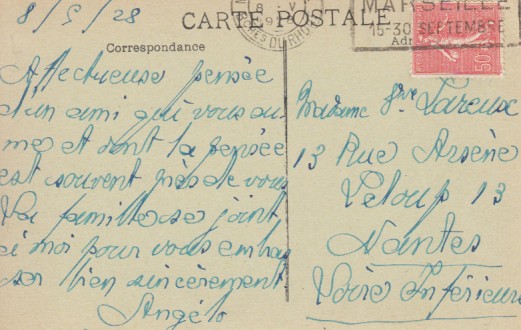 8/5/28
CARTE POSTALE
MARSEILLE
15-30 SEPTEMBRE
Correspondance
Adr
50
Affectueuse pensée
d'un ami qui vous ai-
me et dont la pensée
est souvent près de vous
Ma famille se joint
à moi pour vous embras
ser bien sincèrement
Angélo
Madame Vve Lareux
13 Rue Arsène
Leloup 13
Nantes
Loire Inférieure